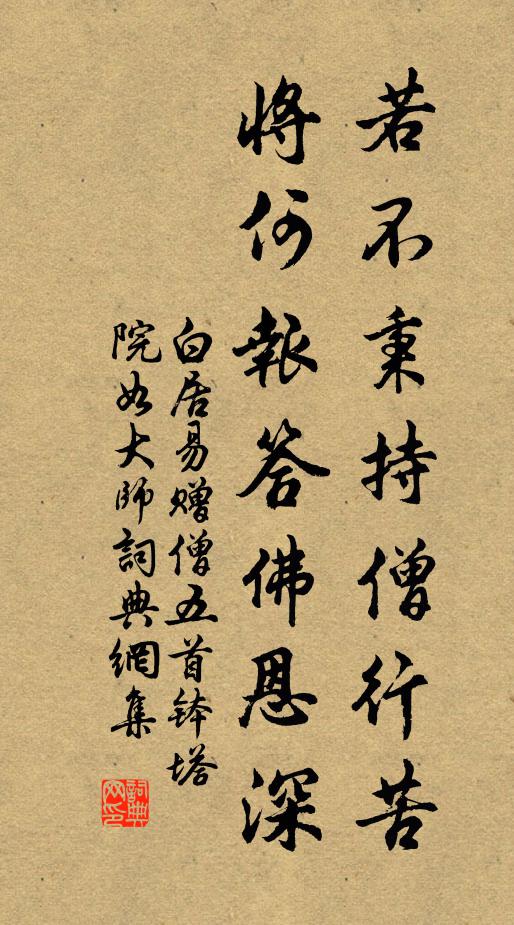 若不秉持僧行苦
將何報答佛恩深
白居易贈僧五首鉢塔
院如大師詞典網集
詞典网印